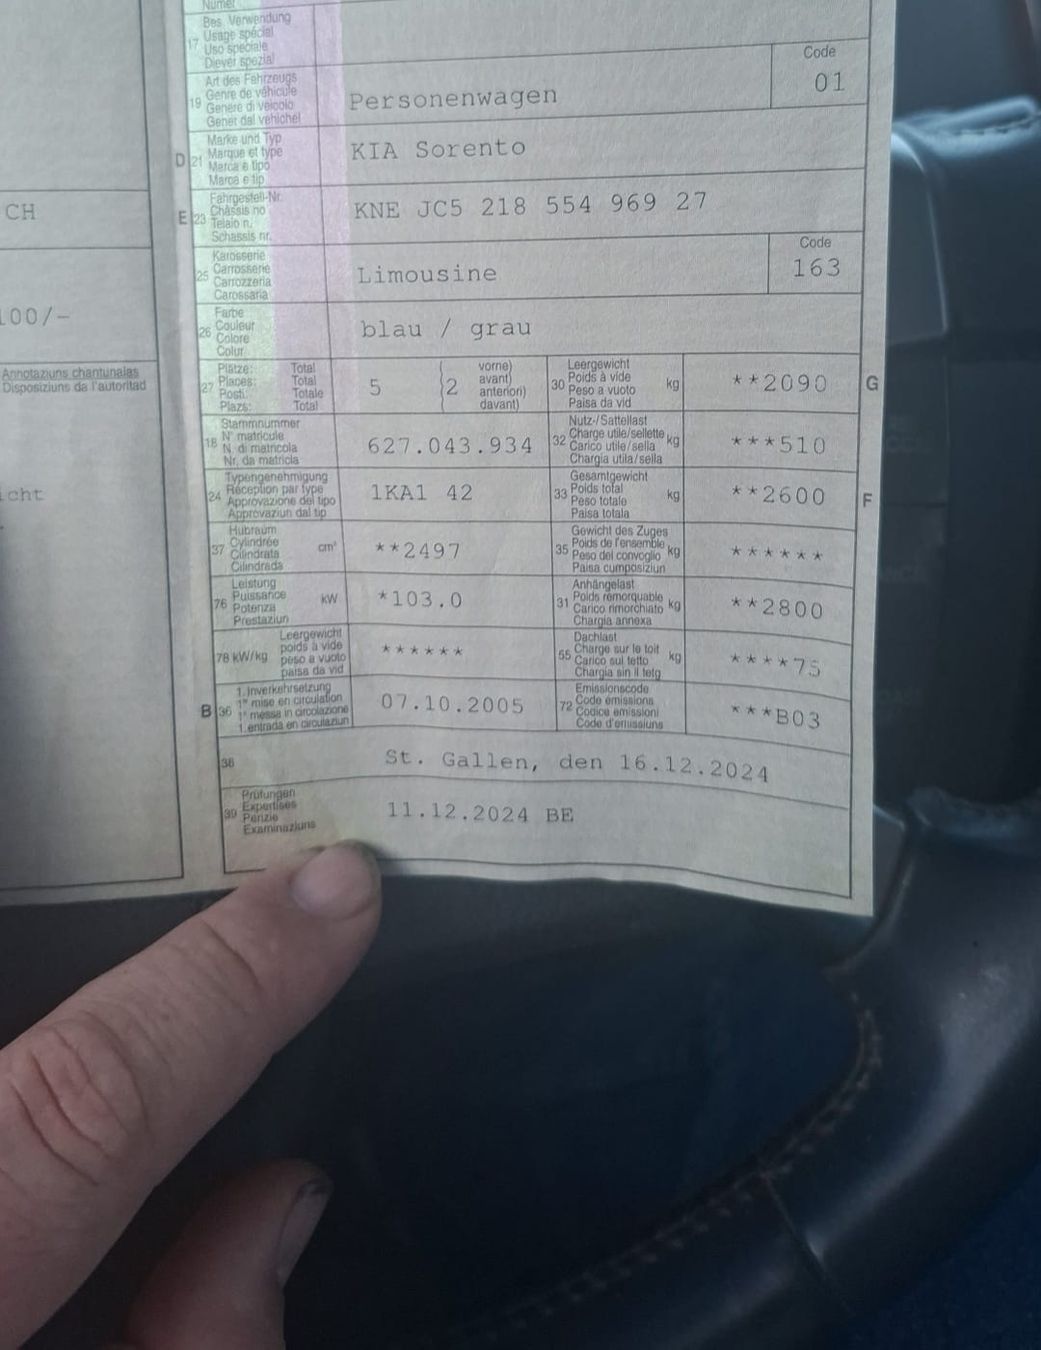 Numer
17 Bes. Verwendung
Usage spécial
Uso speciale
Diever spezial
19 Art des Fahrzeugs
Genre de véhicule
Genere di veicolo
Gener dal vehichel
Personenwagen
Code
01
D 21 Marke und Typ
Marque et type
Marca e tipo
Marca e tip
KIA Sorento
E 23 Fahrgestell-Nr.
Châssis no
Telaio n.
Schassis nr.
KNE JC5 218 554 969 27
25 Karosserie
Carrosserie
Carrozzeria
Carossaria
Limousine
Code
163
26 Farbe
Couleur
Colore
Colur
blau / grau
27 Plätze: Total
Places: Total
Posti: Totale
Plazs: Total
5
(2
vorne)
avant)
anteriori)
davant)
30 Leergewicht
Poids à vide kg
Peso a vuoto
Paisa da vid
**2090
G
18 Stammnummer
N° matricule
N. di matricola
Nr. da matricla
627.043.934
32 Nutz-/Sattellast
Charge utile/sellette kg
Carico utile/sella
Chargia utila/sella
***510
24 Typengenehmigung
Réception par type
Approvazione del tipo
Approvaziun dal tip
1KA1 42
33 Gesamtgewicht
Poids total kg
Peso totale
Paisa totala
**2600
F
37 Hubraum
Cylindrée cm³
Cilindrata
Cilindrada
**2497
35 Gewicht des Zuges
Poids de l'ensemble kg
Peso del convoglio
Paisa cumposiziun
******
76 Leistung
Puissance kW
Potenza
Prestaziun
*103.0
31 Anhängelast
Poids remorquable kg
Carico rimorchiato
Chargia annexa
**2800
78 kW/kg Leergewicht
poids à vide
peso a vuoto
paisa da vid
******
55 Dachlast
Charge sur le toit kg
Carico sul tetto
Chargia sin il tetg
****75
B 36 1. Inverkehrsetzung
1re mise en circulation
1a messa in circolazione
1. entrada en circulaziun
07.10.2005
72 Emissionscode
Code émissions
Codice emissioni
Code d'emissiuns
***B03
38
St. Gallen, den 16.12.2024
39 Prüfungen
Expertises
Perizie
Examinaziuns
11.12.2024 BE
CH
100/-
Annotaziuns chantunalas
Disposiziuns da l'autoritad
icht